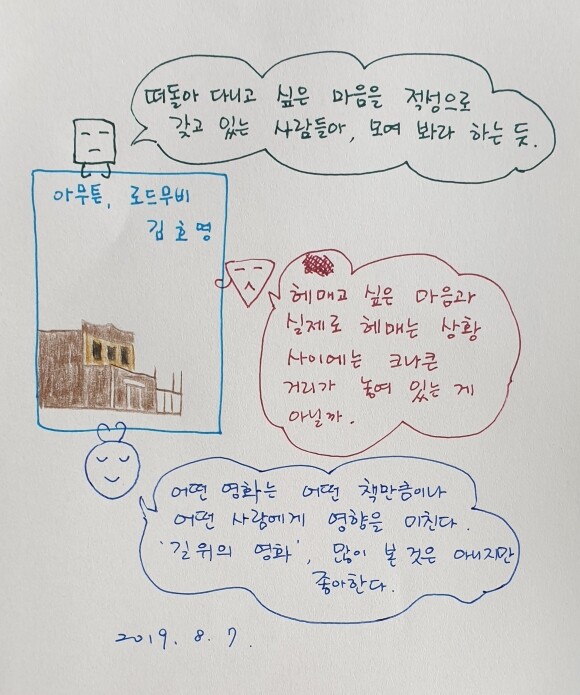 떠돌아 다니고 싶은 마음을 적성으로
갖고 있는 사람들아, 모여 봐라 하는 듯.
아무튼, 로드무비
김호영
헤매고 싶은 마음과
실제로 헤매는 상황
사이에는 크나큰
거리가 놓여 있는 게
아닐까.
어떤 영화는 어떤 책만큼이나
어떤 사람에게 영향을 미친다.
'길 위의 영화', 많이 본 것은 아니지만
좋아한다.
2019. 8. 7.